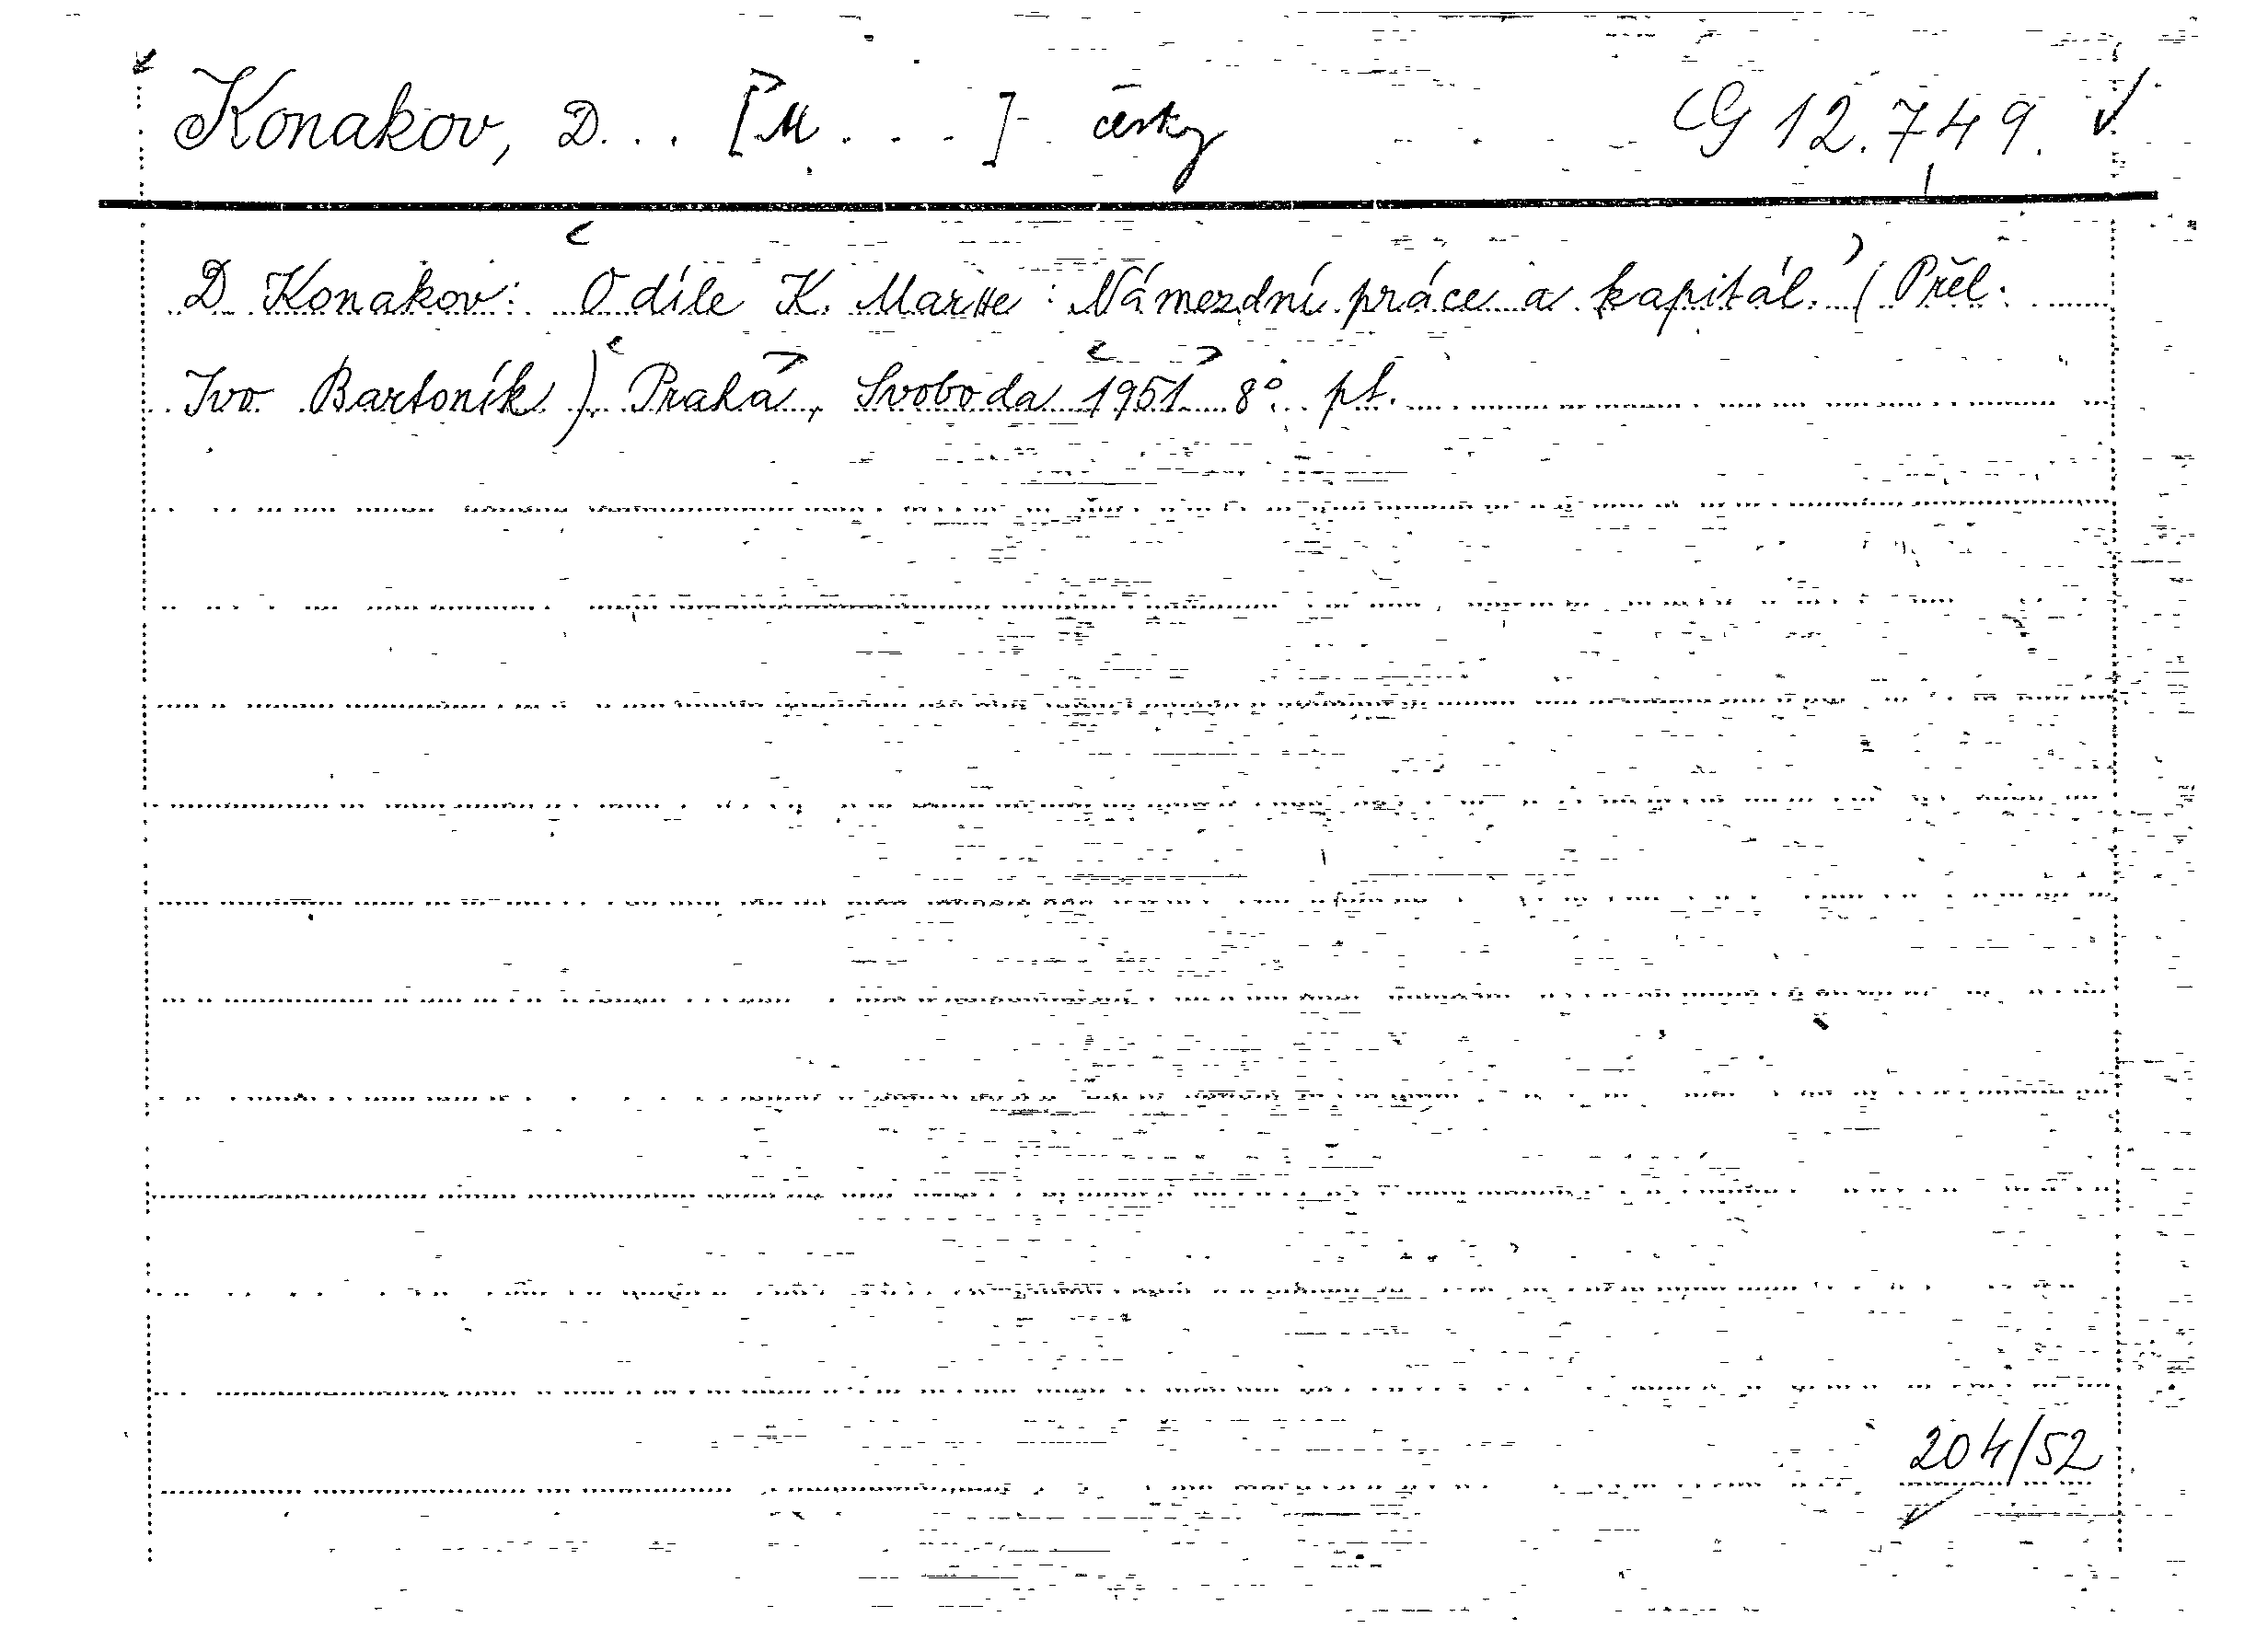 Konakov, D... [M...] česky G 12.749.
D. Konakov: O díle K. Marxe: Námezdní práce a kapitál. (Přel.
Ivo Bartoník). Praha, Svoboda 1951. 8° pt.
204/52